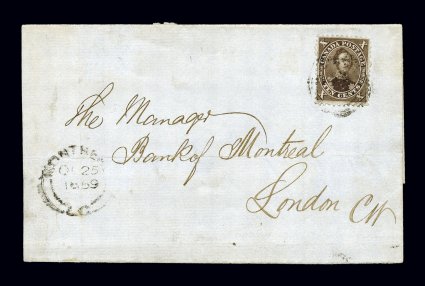 CANADA POSTAGE
TEN CENTS
The Manager
Bank of Montreal
London CW
MONTREAL
25
1859
L.C.